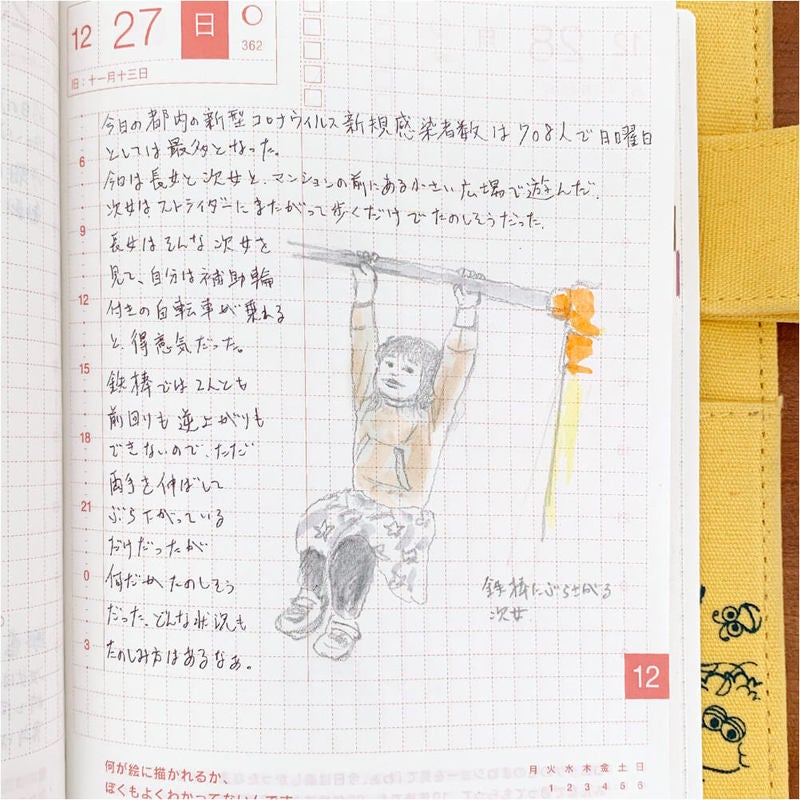 12 27 日
362
旧:十一月十三日
今日の都内の新型コロナウイルス新規感染者数は708人で日曜日
としては最多となった。
今日は長女と次女と、マンションの前にある小さい広場で遊んだ。
次女はストライダーにまたがって歩くだけでたのしそうだった。
長女はそんな次女を
見て、自分は補助輪
付きの自転車が乗れる
と、得意気だった。
鉄棒では2人とも
前回りも逆上がりも
できないので、ただ
両手を伸ばして
ぶら下がっている
だけだったが
何だかたのしそう
だった、どんな状況も
たのしみ方はあるなぁ。
6
9
12
15
18
21
0
3
鉄棒にぶらさがる
次女
12
何が絵に描かれるか、
ぼくもよくわかってないんです
月 火 水 木 金 土 日
1 2 3 4 5 6